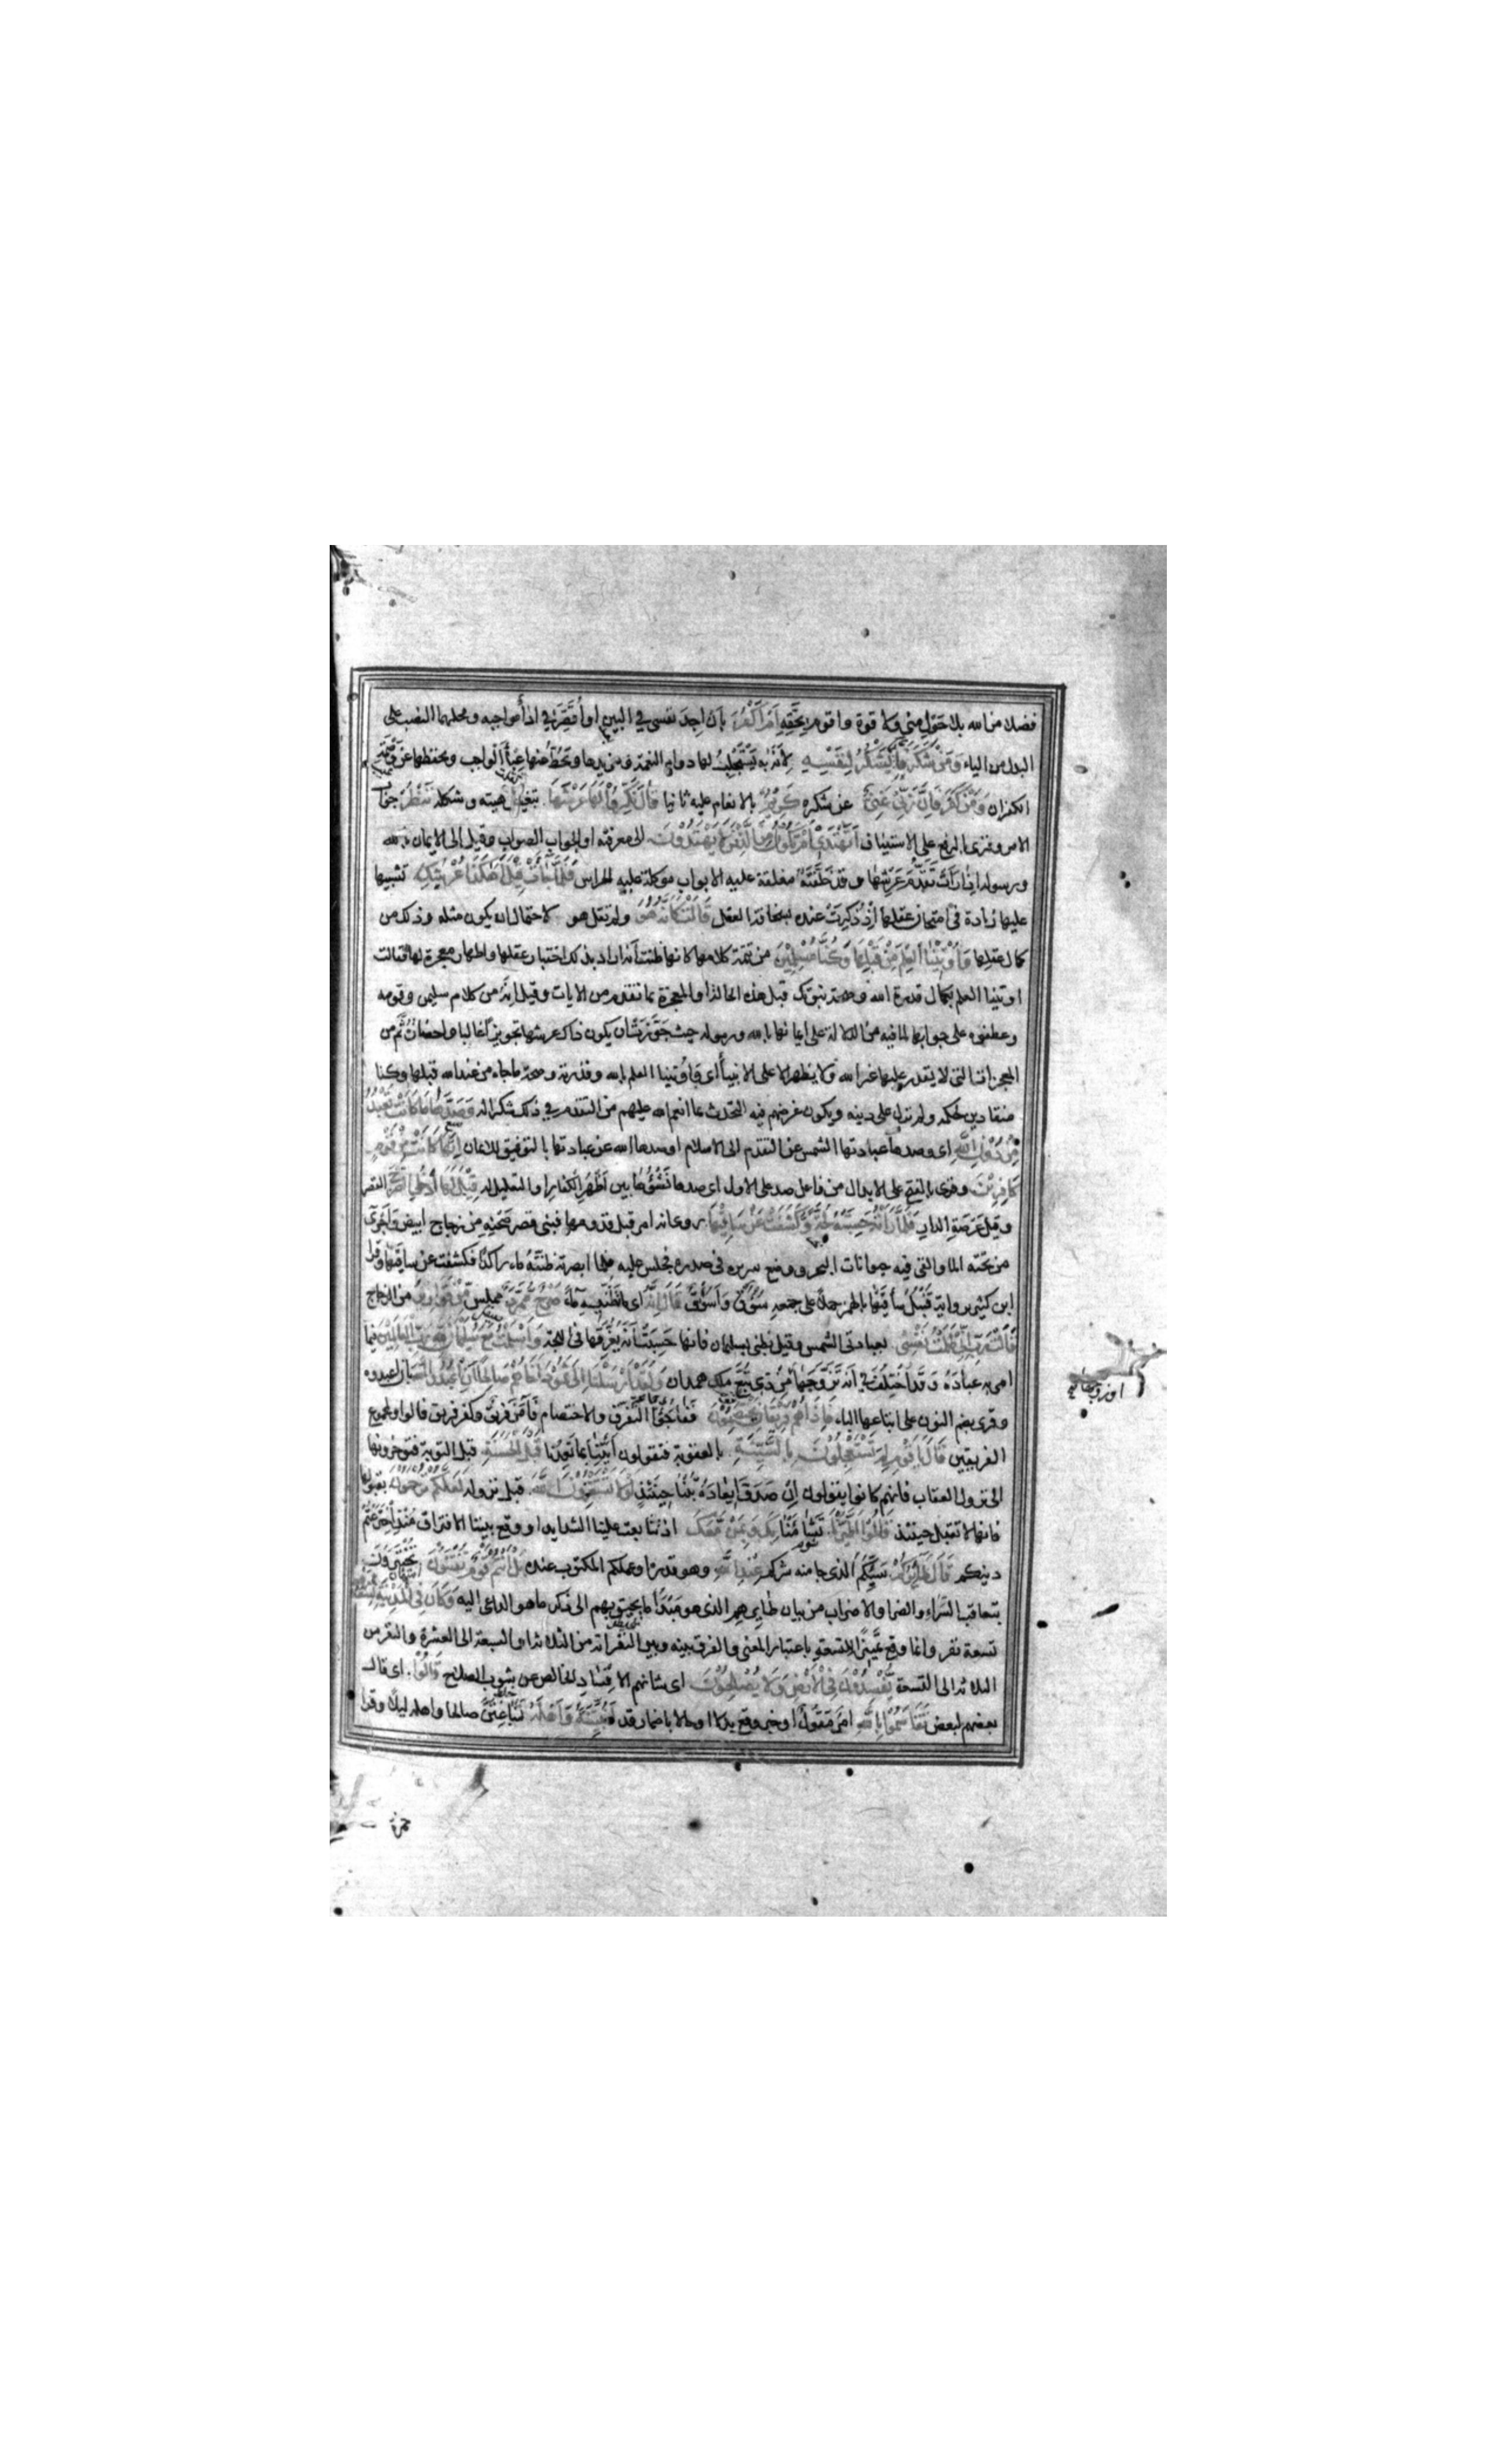 فضلا من الله بلا حول مني ولا قوة واقوم بحقه أم أكفر بان اجد نفسي في البين او أقصر في اداء مواجبه ومحلهما النصب على
البدل من الياء ومن شكر فإنما يشكر لنفسه لأنه به يستجلب لها دوام النعمة ومزيدها ويحط عنها عبء الواجب ويحفظها عن وصمة
الكفران ومن كفر فإن ربي غني عن شكره كريم بالانعام عليه ثانيا قال نكروا لها عرشها بتغيير هيئته وشكله ننظر جواب
الامر وقرئ بالرفع على الاستيناف أتهتدي أم تكون من الذين لا يهتدون الى معرفته او الجواب الصواب وقيل الى الايمان بالله
ورسوله اذا رأت تقدم عرشها وقد خلفته مغلقة عليه الابواب موكلة عليه الحراس فلما جاءت قيل أهكذا عرشك تشبيها
عليها زيادة في امتحان عقلها إذ ذكرت عنده بسخافة العقل قالت كأنه هو ولم تقل هو لاحتمال ان يكون مثله وذلك من
كمال عقلها وأوتينا العلم من قبلها وكنا مسلمين من تتمة كلامها كانها ظنت أنه اراد بذلك اختبار عقلها واظهار معجزة لها فقالت
اوتينا العلم بكمال قدرة الله وصحة نبوتك قبل هذه الحالة او المعجزة بما تقدم من الايات وقيل انه من كلام سليمن وقومه
وعطفوه على جوابها لما فيه من الدلالة على ايمانها بالله ورسوله حيث جوزت ان يكون ذاك عرشها تجويزا غالبا واحضاره ثم من
المعجزات التي لا يقدر عليها غير الله ولا يظهر الا على الانبياء أي وأوتينا العلم بالله وقدرته وصحة ما جاء من عند الله قبلها وكنا
منقادين لحكمه ولم نزل على دينه ويكون غرضهم فيه التحدث بما انعم الله عليهم من التقدم في ذلك شكرا له وصدها ما كانت تعبد
من دون الله اي وصدها عبادتها الشمس عن التقدم الى الاسلام او صدها الله عن عبادتها بالتوفيق للايمان إنها كانت من قوم
كافرين وقرئ بالفتح على الابدال من فاعل صد على الاول اي صدها نشؤها بين أظهر الكفار او التعليل له قيل لها ادخلي الصرح القصر
وقيل عرصة الدار فلما رأته حسبته لجة وكشفت عن ساقيها روي انه امر قبل قدومها فبنى قصر صحنه من زجاج ابيض وأجرى
من تحته الماء والقى فيه حيوانات البحر ووضع سريره في صدره فجلس عليه فلما ابصرته ظنته ماء راكدا فكشفت عن ساقيها وقرأ
ابن كثير برواية قنبل سأقيها بالهمز حملا على جمعه سؤوق وأسؤق قال إنه اي ما تظنينه ماء صرح ممرد مملس من قوارير من الزجاج
قالت رب إني ظلمت نفسي بعبادتي الشمس وقيل بظني بسليمان فانها حسبت أنه يغرقها في اللجة وأسلمت مع سليمان لله رب العالمين فيما
امر به عباده وقد اختلف في انه تزوجها أو زوجها من ذي تبع ملك همدان ولقد أرسلنا إلى ثمود أخاهم صالحا أن اعبدوا الله بان اعبدوه
وقرئ بضم النون على اتباعها الباء فإذا هم فريقان يختصمون ففاجئوا التفرق والاختصام فآمن فريق وكفر فريق قالوا او لمجموع
الفريقين قال يا قوم لم تستعجلون بالسيئة بالعقوبة فتقولون ائتنا بما تعدنا قبل الحسنة قبل التوبة فتؤخرونها
الى نزول العقاب فانهم كانوا يقولون إن صدق إيعاده تبنا حينئذ لولا تستغفرون الله قبل نزوله لعلكم ترحمون بقبولها
فانها لا تقبل حينئذ قالوا اطيرنا تشاءمنا بك وبمن معك اذ تتابعت علينا الشدايد او وقع بيننا الافتراق منذ اخترعتم
دينكم قال طائركم سببكم الذي جا منه شركم عند الله وهو قدره او عملكم المكتوب عنده بل أنتم قوم تفتنون تختبرون
بتعاقب السراء والضرا والاضراب من بيان طايرهم الذي هو مبدأ ما يحيق بهم الى ذكر ما هو الداعي اليه وكان في المدينة تسعة رهط
تسعة نفر وانما وقع تمييزا للتسعة باعتبار المعنى والفرق بينه وبين النفر انه من الثلاثة او السبعة الى العشرة والنفر من
الثلاثة الى التسعة يفسدون في الأرض ولا يصلحون اي شانهم الافساد الخالص عن شوب الصلاح قالوا اي قال
بعضهم لبعض تقاسموا بالله امر مقول او خبر وقع بدلا او حالا باضمار قد لنبيتنه وأهله لنباغتن صالحا واهله ليلا وقرأ
او زوجها
حمزة